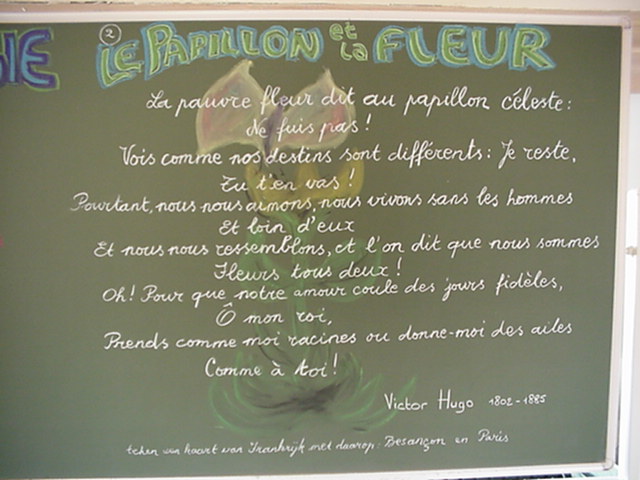 SIE
2 LE PAPILLON et la FLEUR
La pauvre fleur dit au papillon céleste:
Ne fuis pas!
Vois comme nos destins sont différents: Je reste,
Tu t'en vas!
Pourtant, nous nous aimons, nous vivons sans les hommes
Et loin d'eux
Et nous nous ressemblons, et l'on dit que nous sommes
Fleurs tous deux!
Oh! Pour que notre amour coule des jours fidèles,
Ô mon roi,
Prends comme moi racines ou donne-moi des ailes
Comme à toi!
Victor Hugo 1802-1885
teken een kaart van Frankrijk met daarop: Besançon en Paris